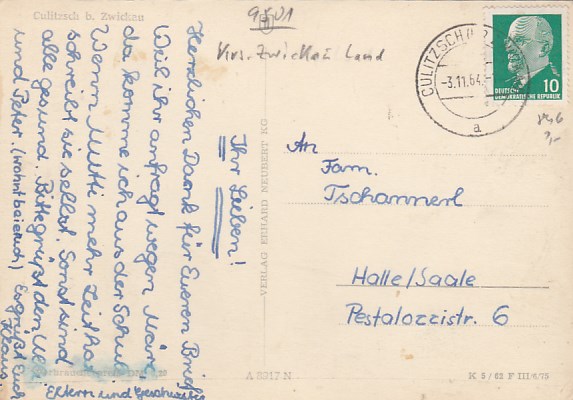 Culitzsch b. Zwickau
9501
Krs. Zwickau / Land
CULITZSCH
-3.11.64.
a
10
DEUTSCHE
DEMOKRATISCHE REPUBLIK
Ihr Lieben!
Herzlichen Dank für Eueren Brief.
Weil ihr anfragt wegen März
da komme ich aus der Schule
Wenn Mutti mehr Zeit hat
schreibt sie selbst. Sonst sind
alle gesund. Bitte grüßt den
und Peter. (wohnt bei euch) Es grüßt Euch
Klaus.
Eltern und Geschwister
VERLAG ERHARD NEUBERT KG
An
Fam.
Tschammerl
Halle/Saale
Pestalozzistr. 6
A 2017 N
K 5/62 F III/6/75